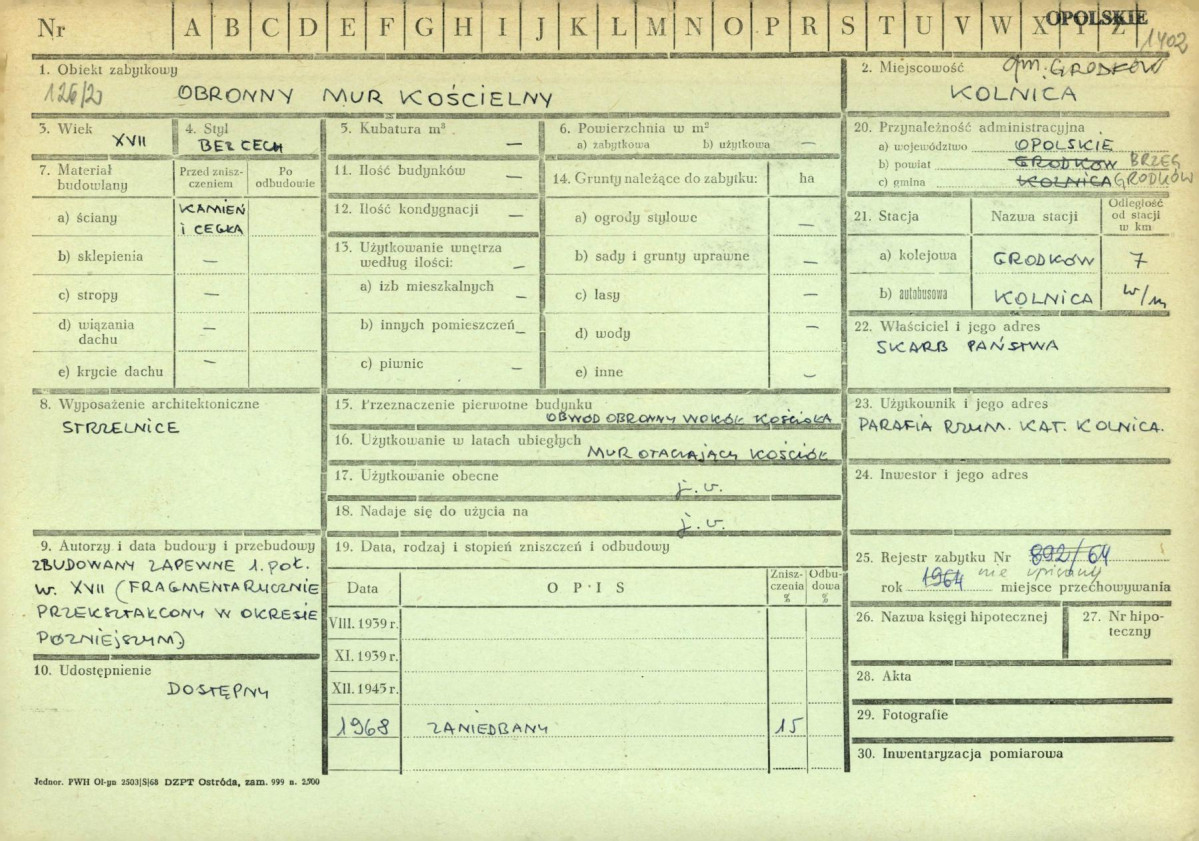 Nr A B C D E F G H I J K L M N O P R S T U V W X Y Z
OPOLSKIE
1402
1. Obiekt zabytkowy
126/2
OBRONNY MUR KOŚCIELNY
2. Miejscowość gm. GRODKÓW
KOLNICA
3. Wiek
XVII
4. Styl
BEZ CECH
5. Kubatura m³ —
6. Powierzchnia w m²
a) zabytkowa b) użytkowa —
7. Materiał budowlany
Przed zniszczeniem
Po odbudowie
a) ściany KAMIEŃ
i CEGŁA
b) sklepienia —
c) stropy —
d) wiązania dachu —
e) krycie dachu —
11. Ilość budynków —
12. Ilość kondygnacji —
13. Użytkowanie wnętrza
według ilości: —
a) izb mieszkalnych —
b) innych pomieszczeń —
c) piwnic —
14. Grunty należące do zabytku: ha
a) ogrody stylowe —
b) sady i grunty uprawne —
c) lasy —
d) wody —
e) inne —
20. Przynależność administracyjna
a) województwo OPOLSKIE
b) powiat GRODKÓW BRZEG
c) gmina KOLNICA GRODKÓW
21. Stacja Nazwa stacji Odległość
od stacji
w km
a) kolejowa GRODKÓW 7
b) autobusowa KOLNICA w/m
22. Właściciel i jego adres
SKARB PAŃSTWA
8. Wyposażenie architektoniczne
STRZELNICE
15. Przeznaczenie pierwotne budynku
OBWÓD OBRONNY WOKÓŁ KOŚCIOŁA
16. Użytkowanie w latach ubiegłych
MUR OTACZAJĄCY KOŚCIÓŁ
17. Użytkowanie obecne j.w.
18. Nadaje się do użycia na j.w.
23. Użytkownik i jego adres
PARAFIA RZYM. KAT. KOLNICA.
24. Inwestor i jego adres
9. Autorzy i data budowy i przebudowy
ZBUDOWANY ZAPEWNE 1. POŁ.
W. XVII (FRAGMENTARYCZNIE
PRZEKSZTAŁCONY W OKRESIE
PÓŹNIEJSZYM)
10. Udostępnienie
DOSTĘPNY
19. Data, rodzaj i stopień zniszczeń i odbudowy
Data OPIS Zniszczenia % Odbudowa %
VIII. 1939 r.
XI. 1939 r.
XII. 1945 r.
1968 ZANIEDBANY 15
25. Rejestr zabytku Nr 892/64
nie wpisany
rok 1964 miejsce przechowywania
26. Nazwa księgi hipotecznej
27. Nr hipoteczny
28. Akta
29. Fotografie
30. Inwentaryzacja pomiarowa
Jednor. PWH Ol-yn 2503|S|68 DZPT Ostróda, zam. 999 n. 2500